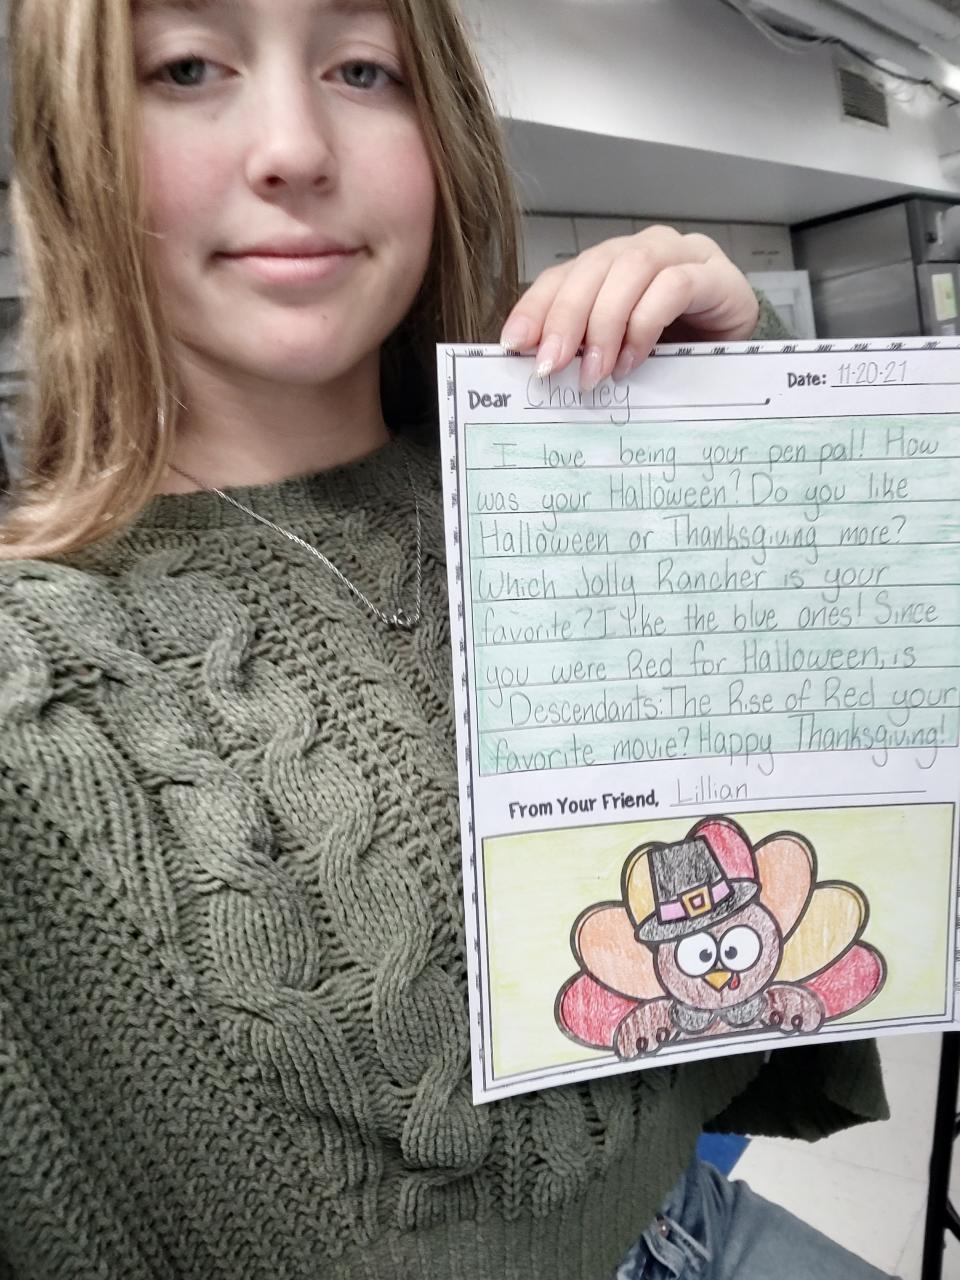 Dear Charley, Date: 11-20-21
I love being your pen pal! How
was your Halloween? Do you like
Halloween or Thanksgiving more?
Which Jolly Rancher is your
favorite? I like the blue ones! Since
you were Red for Halloween, is
Descendants: The Rise of Red your
favorite movie? Happy Thanksgiving!
From Your Friend, Lillian